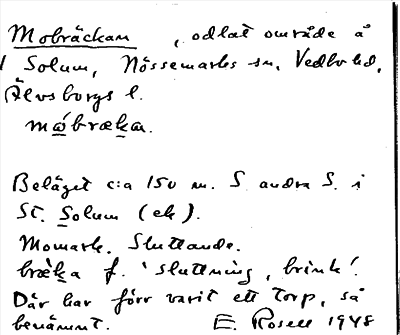 Mobräckan, odlat område å
Solum, Nössemarks sn, Vedbo hd,
Älvsborgs l.
mo̲bræka̲.
Beläget c:a 150 m. S. andra S. i
St. Solum (ek).
Momark. Sluttande.
bræka f. 'sluttning, brink'.
Där har förr varit ett torp, så
benämnt. E. Rosell 1948